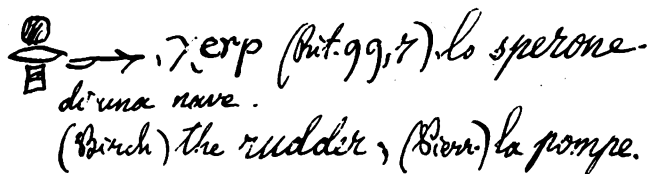 χerp (Rit. 99, 7) lo sperone
di una nave.
(Birch) the rudder, (Pierr.) la pompe.